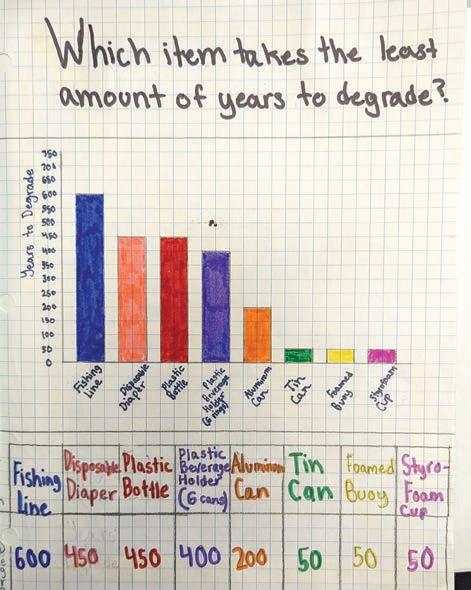 Which item takes the least
amount of years to degrade?
Years to Degrade
750
700
650
600
550
500
450
400
350
300
250
200
150
100
50
0
Fishing
Line
Disposable
Diaper
Plastic
Bottle
Plastic
Beverage
Holder
(6 rings)
Aluminum
Can
Tin
Can
Foamed
Buoy
Styrofoam
Cup
Fishing
Line
Disposable
Diaper
Plastic
Bottle
Plastic
Beverage
Holder
(6 cans)
Aluminum
Can
Tin
Can
Foamed
Buoy
Styro-
Foam
Cup
600 450 450 400 200 50 50 50